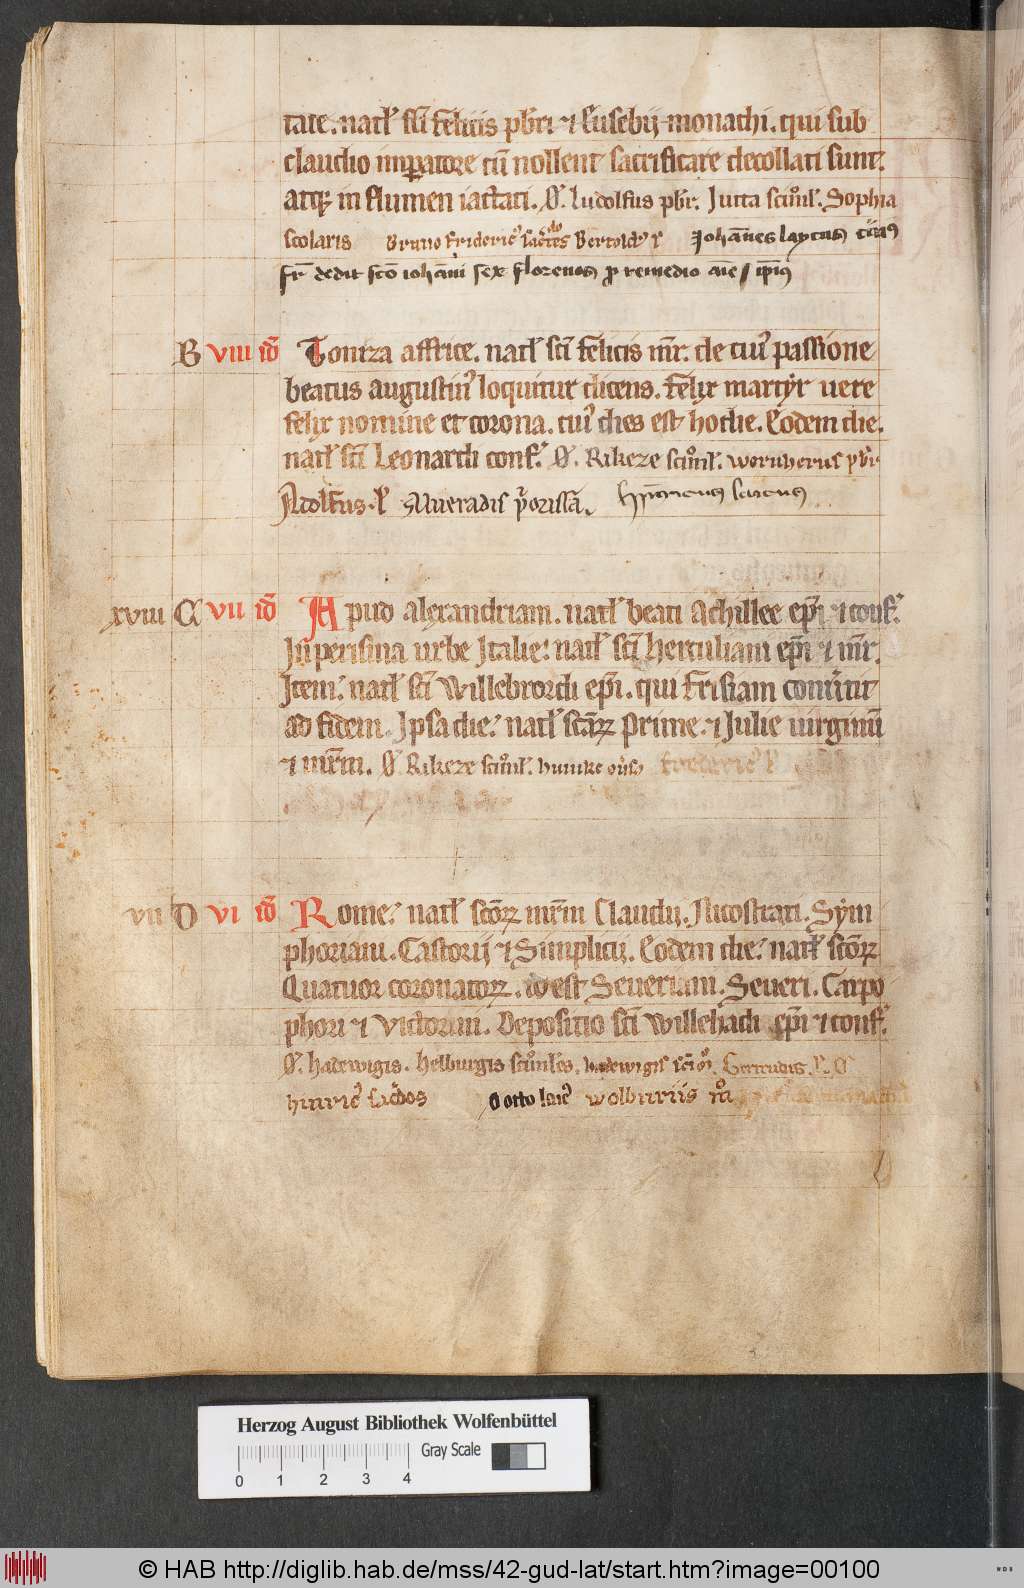 tate. natł sc̄i felicis pb̄ri ⁊ Eusebij monachi. qui sub
claudio imꝑatore cū nollent sacrificare decollati sunt.
atq; in flumen iactati. Ludolfus pb̄r. Jutta Sophia
scolaris Bruno frideric⁹ Bertold⁹ Joh̄annes
fr̄ dedit sc̄o ioh̄anni sex florenos ꝓ remedio aīe ip̄ius
B VIII id̄ Toniza affrice. natł sc̄i felicis mr̄. de cui⁹ passione
beatus augustin⁹ loquitur dicens. felix martyr uere
felix nomine et corona. cui⁹ dies est hodie. Eodem die.
natł sc̄i Leonardi conf. O. Rikeze wernherus pb̄r
Adolfus.
xviii C VII id̄ Apud alexandriam. natł beati Achillee ep̄i ⁊ conf.
In perisina urbe Italie. natł sc̄i herculiani ep̄i ⁊ mr̄.
Item. natł sc̄i Willebrordi ep̄i. qui frisiam conu̓tit
ad fidem. Ipsa die. natł sc̄aꝝ prime. ⁊ Julie uirginū
⁊ mr̄m. O. Rikeze frideric⁹
vii D VI id̄ Rome. natł sc̄oꝝ mr̄m Claudij. Nicostrati. Sym
phoriani. Castorij ⁊ Simplicij. Eodem die. natł sc̄oꝝ
Quatuor coronatoꝝ. id est Seueriani. Seueri. Carpo
phori ⁊ Victorini. Depositio sc̄i Willehadi ep̄i ⁊ conf.
O. hadewigis. helburgis hadewigis Gertrudis.
hinric⁹ O otto laic⁹
Herzog August Bibliothek Wolfenbüttel
Gray Scale
0 1 2 3 4
© HAB http://diglib.hab.de/mss/42-gud-lat/start.htm?image=00100